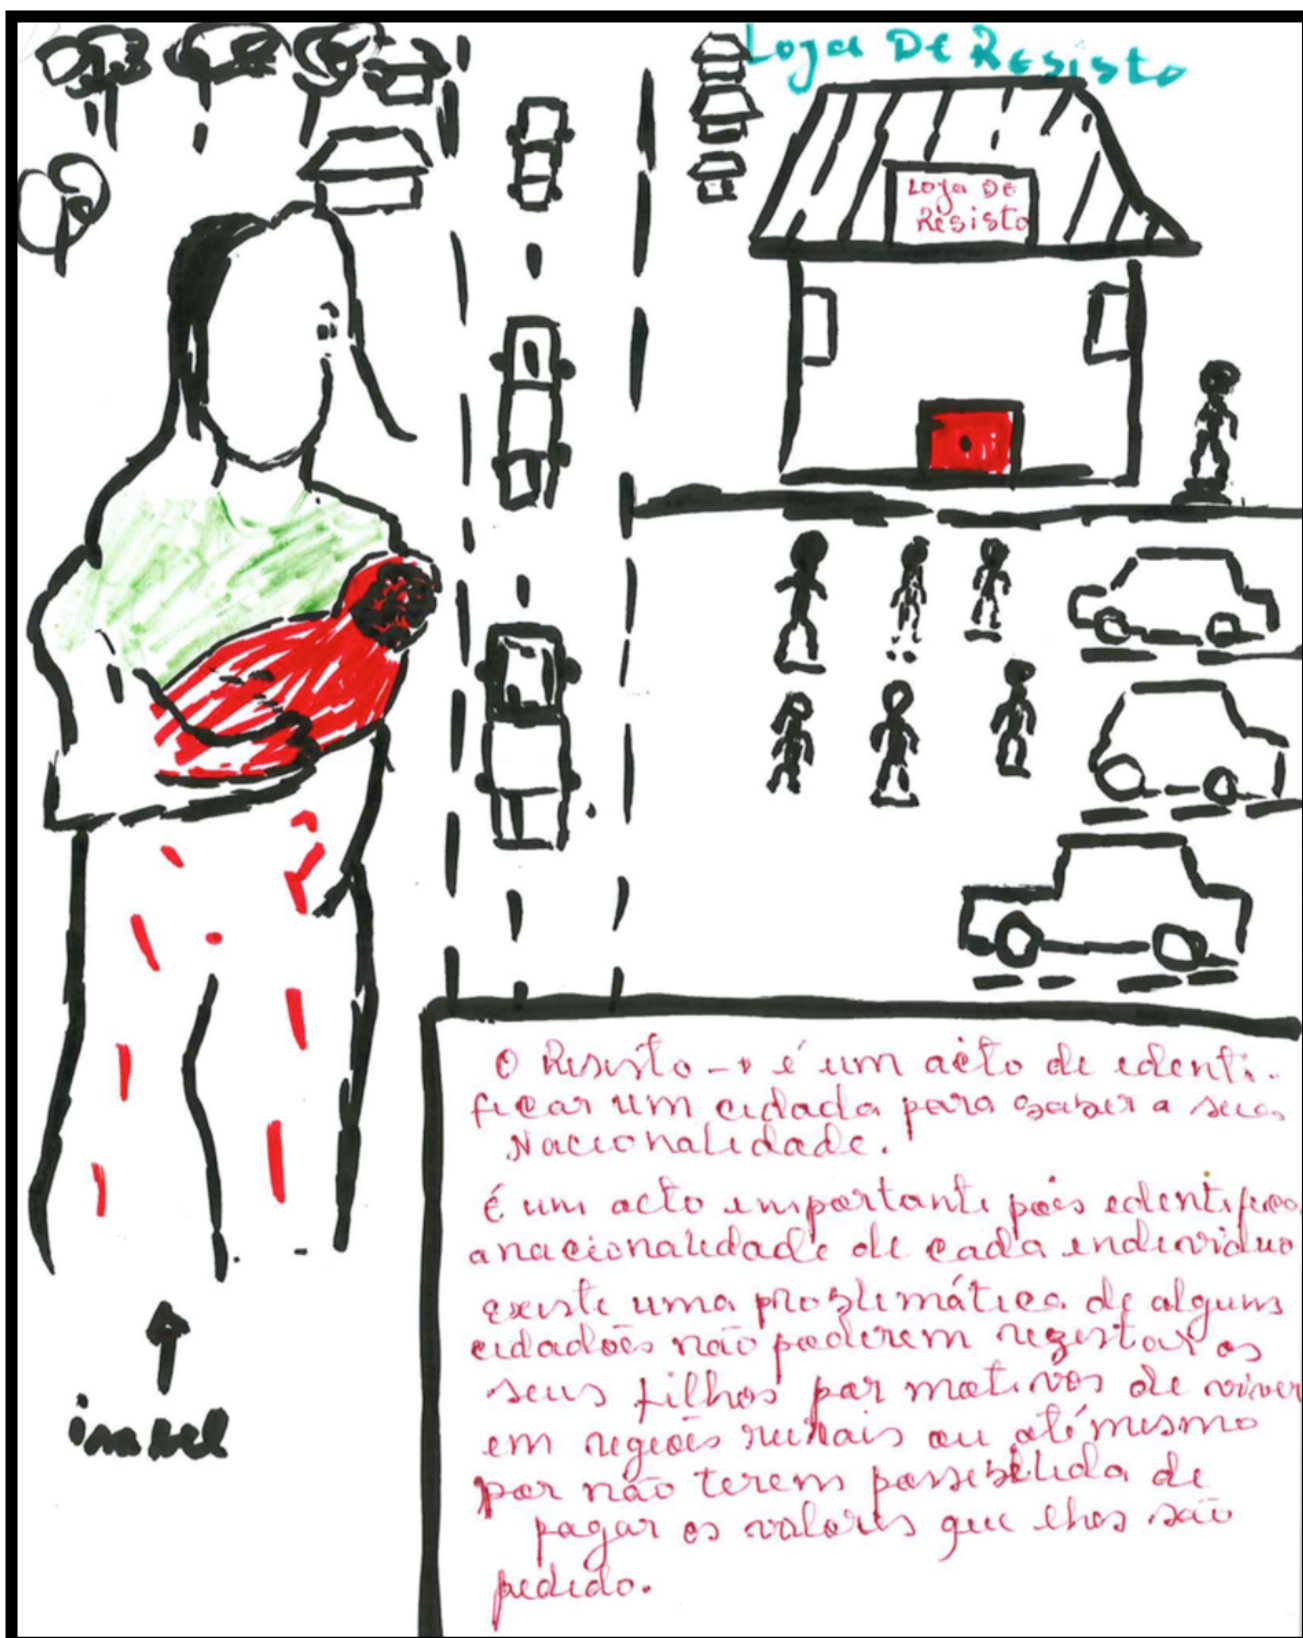 Loja De Resisto
Loja De
Resisto
O Resisto → é um acto de edenti-
ficar um cidada para saber a sua
Nacionalidade.
é um acto importante pois edentifica
a nacionalidade de cada endividuo
existe uma problemática de alguns
cidadões não poderem registar os
seus filhos por motivos de viver
em regiões rurais ou até mesmo
por não terem possebilida de
pagar os valores que lhes são
pedido.